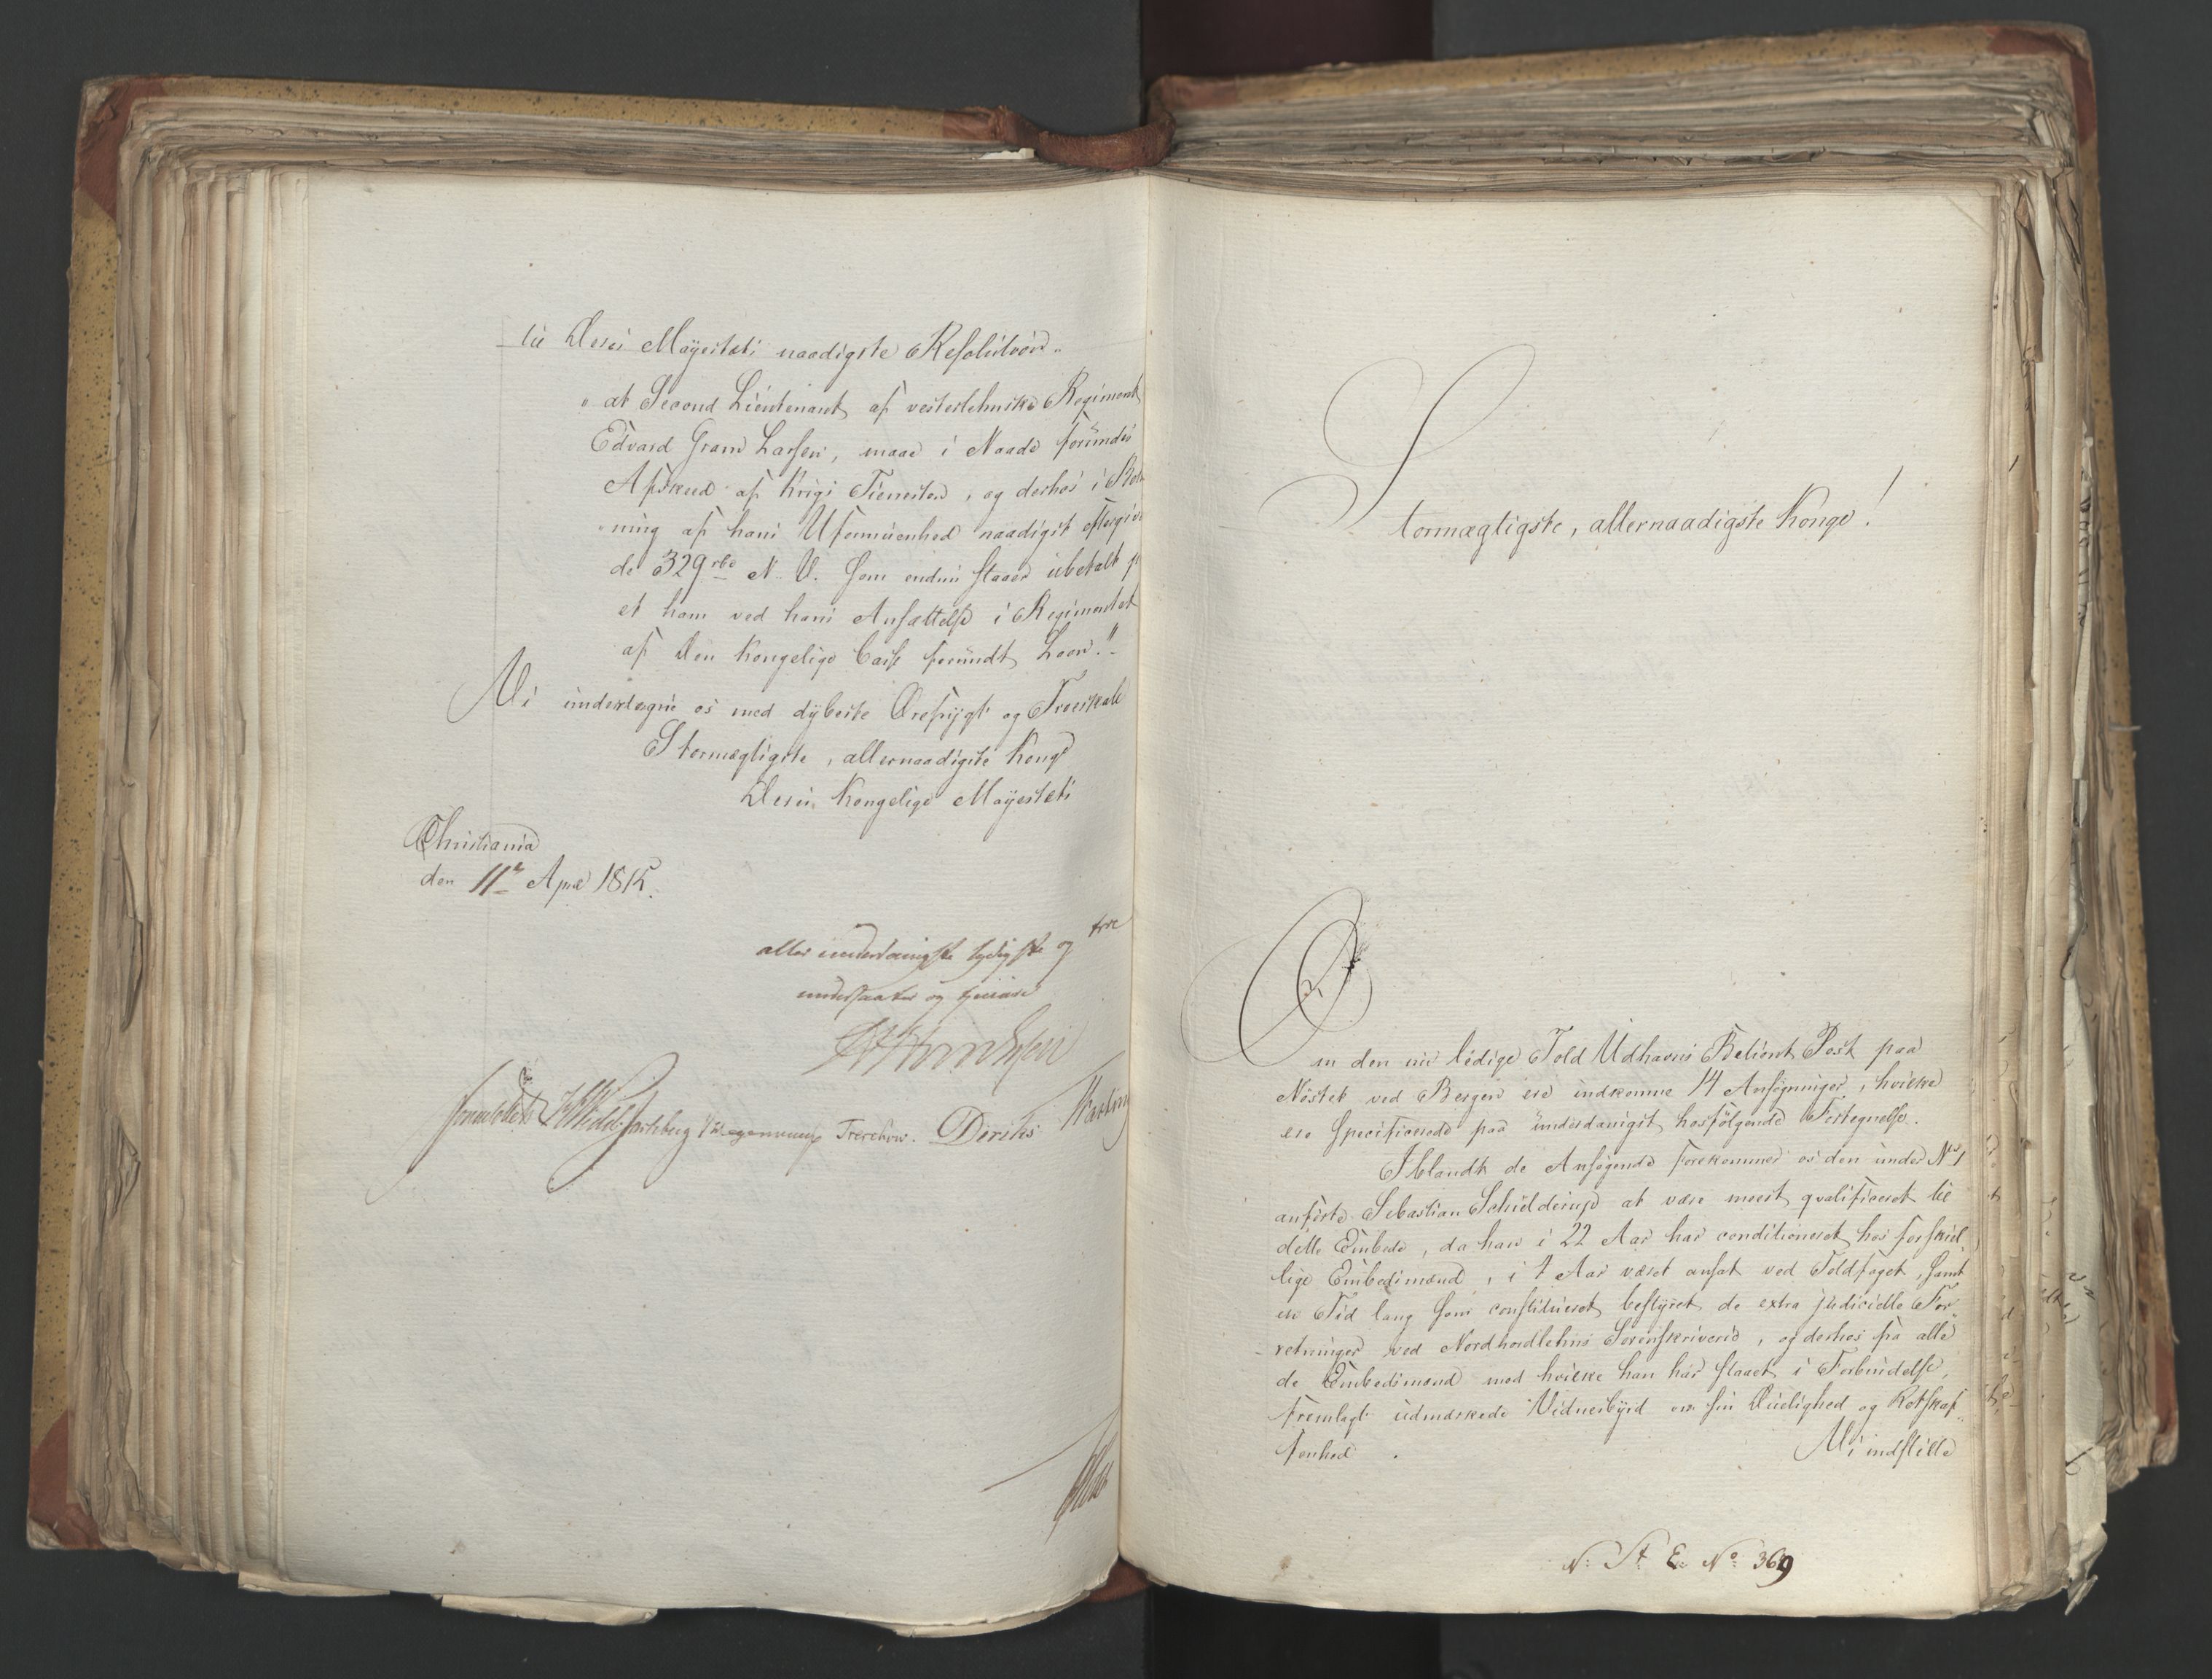 til Deres Mayestæts naadigste Resolution
"at Second Lieutenant af vesterlehnske Regiment
Edvard Gram Larsen, maae i Naade forundes
Afskeed af Krigs Tienesten, og derhos i
"ning af hans Uformuenhed naadigst eftergives
de 329 rbd N. V. som endnu staaer ubetalt
et ham ved hans Ansættelse i Regimentet
af Den Kongelige Casse forundt Laan."
Vi undertegne os med dybeste Ærefrygt og Troeskab
Stormægtigste, allernaadigste Konge
Deres Kongelige Mayestæts
Christiania
den 11te April 1815.
aller underdanigste lydigste og troe
undersaatter og tjenere
Sommerhielm Wedel Jarlsberg Treschow. Diriks Hasting
Stormægtigste, allernaadigste Konge!
Om den nu ledige Told Udhavns Betient Post paa
Nöstet ved Bergen ere indkomne 14 Ansögninger, hvilke
ere specificerede paa underdanigst hosfölgende Fortegnelse.
Iblandt de Ansögende forekommer os den under No 1
anförte Sebastian Schielderup at være meest qvalificeret til
dette Embede, da han i 22 Aar har conditioneret hos forskiel„
lige Embedsmænd, i 7 Aar været ansat ved Toldfaget, samt
en Tid lang som constitueret bestyret de extra judicielle For„
retninger ved Nordhordlehns Sorenskriverie, og derhos fra alle
de Embedsmænd med hvilke han har staaet i Forbindelse,
fremlagt udmærkede Vidnesbyrd om sin Duelighed og Retskaf„
fenhed.
Vi indstille
N: St E: No 369